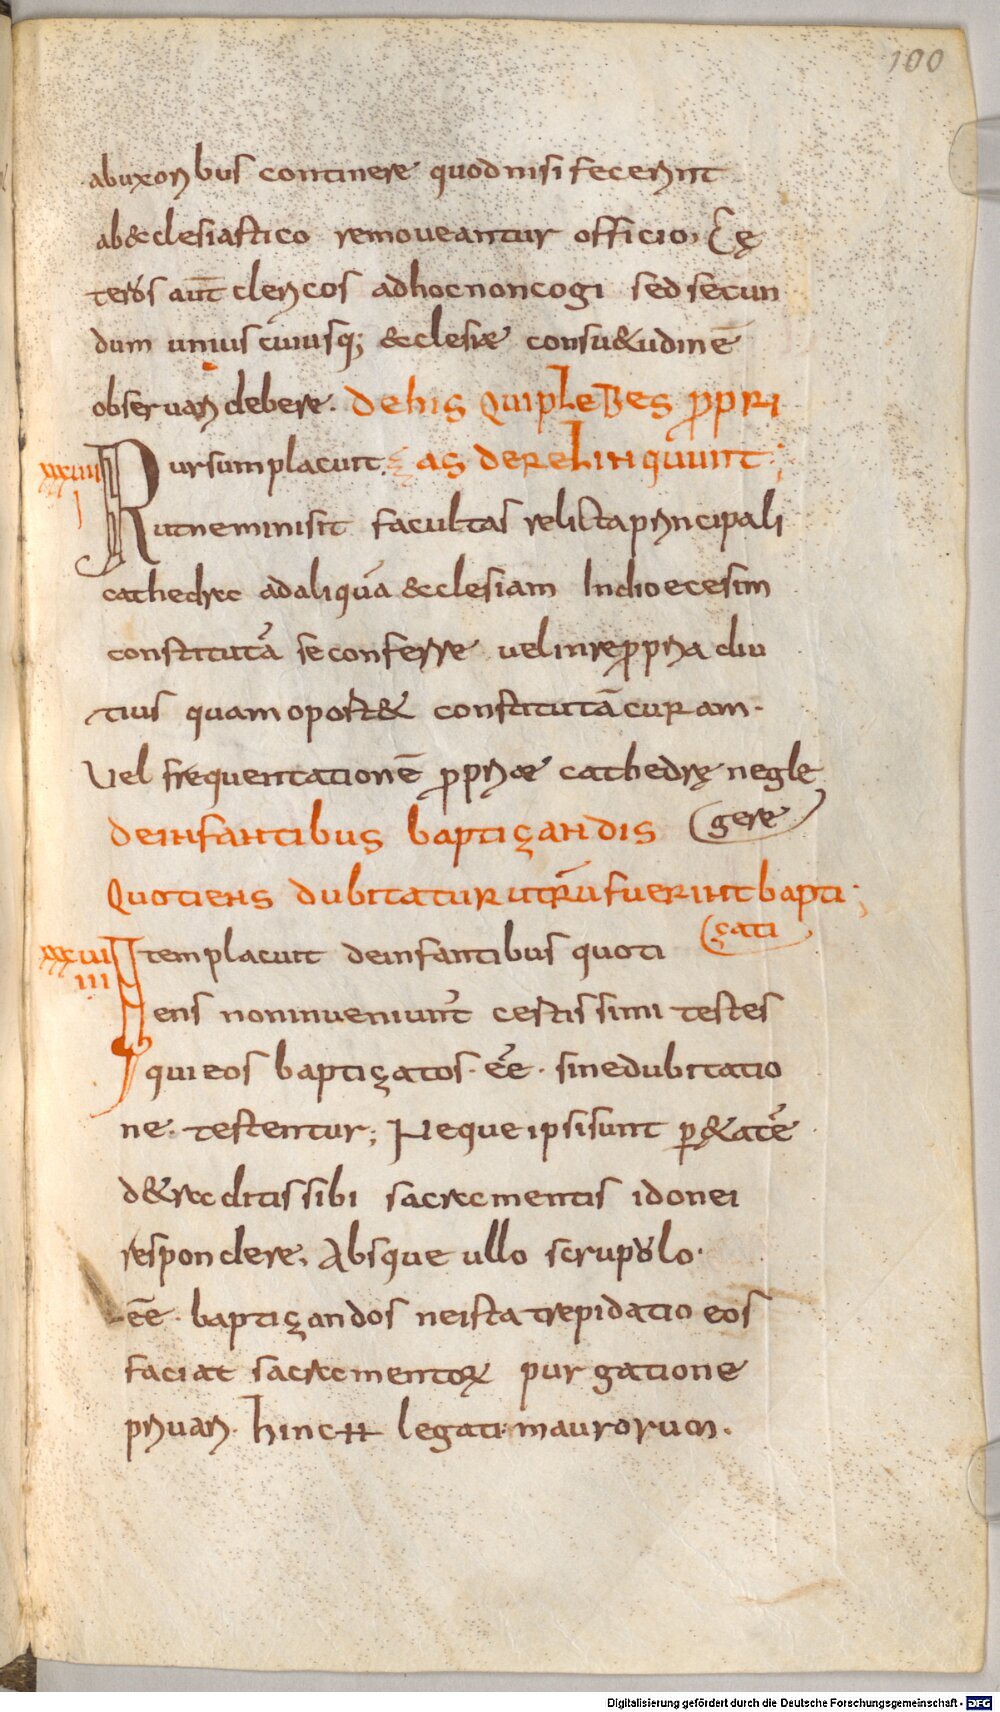 100
abuxoribus continere quodnisi fecerint
ab&clesiastico remoueantur officio, Cę
teros aut̄ clericos adhocnoncogi sed secun
dum unius cuiusq; &clesiae consu&udinē
obseruari debere. De his qui plebes propri
xxxiiii
Rursumplacuit. as derelinquunt;
utneminisit facultas relicta principali
cathedra adaliquā &clesiam Indioecesim
constitutā seconferre uelinrepropria diu
tius quamoport& constitutā curam.
Vel frequentationē propriae cathedrę negle
gere
De infantibus baptizandis
Quotiens dubitatur utrū fuerint bapti;
zati
xxxvii
iii
Item placuit deinfantibus quoti
ens noninueniunt̄ certissimi testes
qui eos baptizatos. eē̄. sinedubitatio
ne. testentur; Neque ipsi sunt p &atē
d&raditis sibi sacramentis idonei
respondere. Absque ullo scrupulo.
eē̄. baptizandos neista trepidatio eos
faciat sacramentorum purgatione
priuari. hinc legati maurorum.
Digitalisierung gefördert durch die Deutsche Forschungsgemeinschaft - DFG